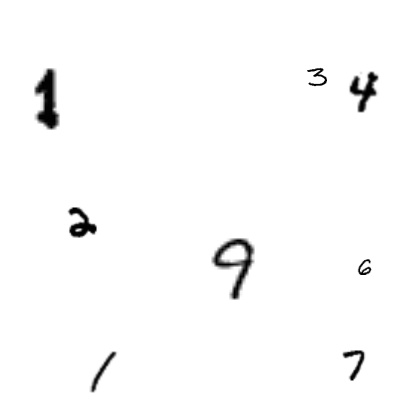 1 3 4
2
9 6
1 7